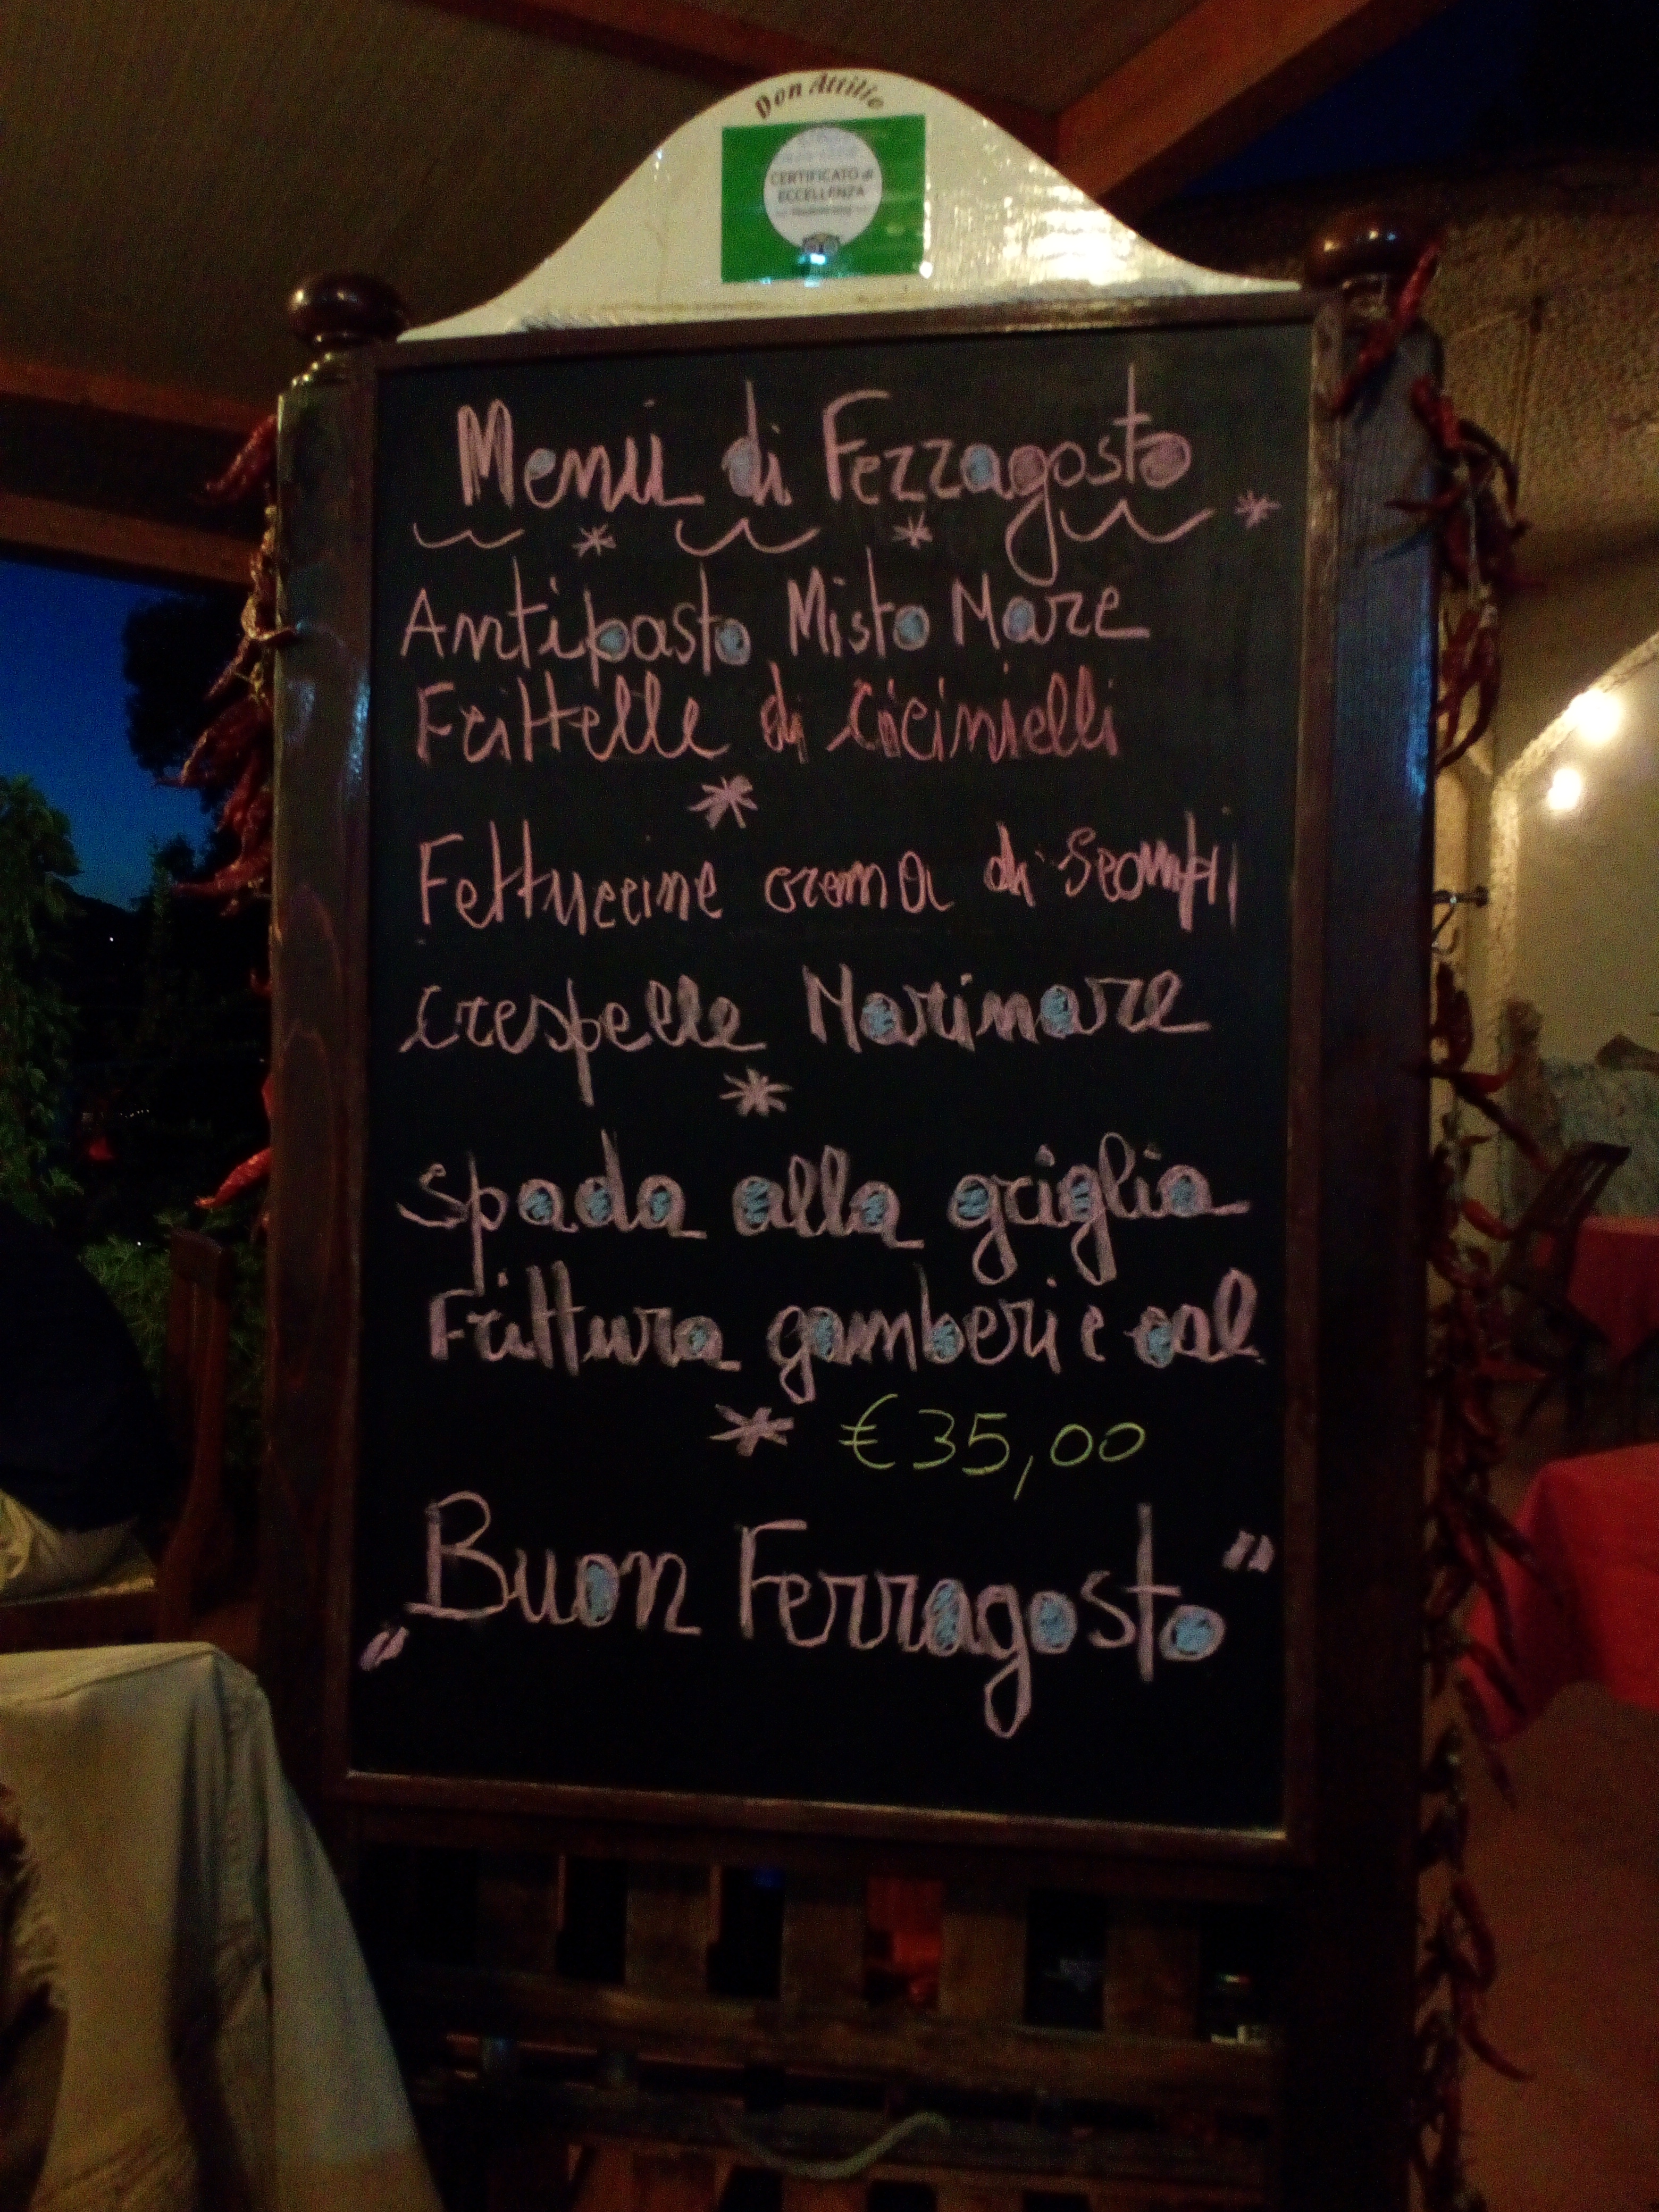 Don Attilio
CERTIFICATO di
ECCELLENZA
Menù di Ferragosto
Antipasto Misto Mare
Frittelle di Cicinielli
Fettuccine crema di Scampi
Crespelle Marinare
Spada alla griglia
Frittura gamberi e cal
€35,00
"Buon Ferragosto"